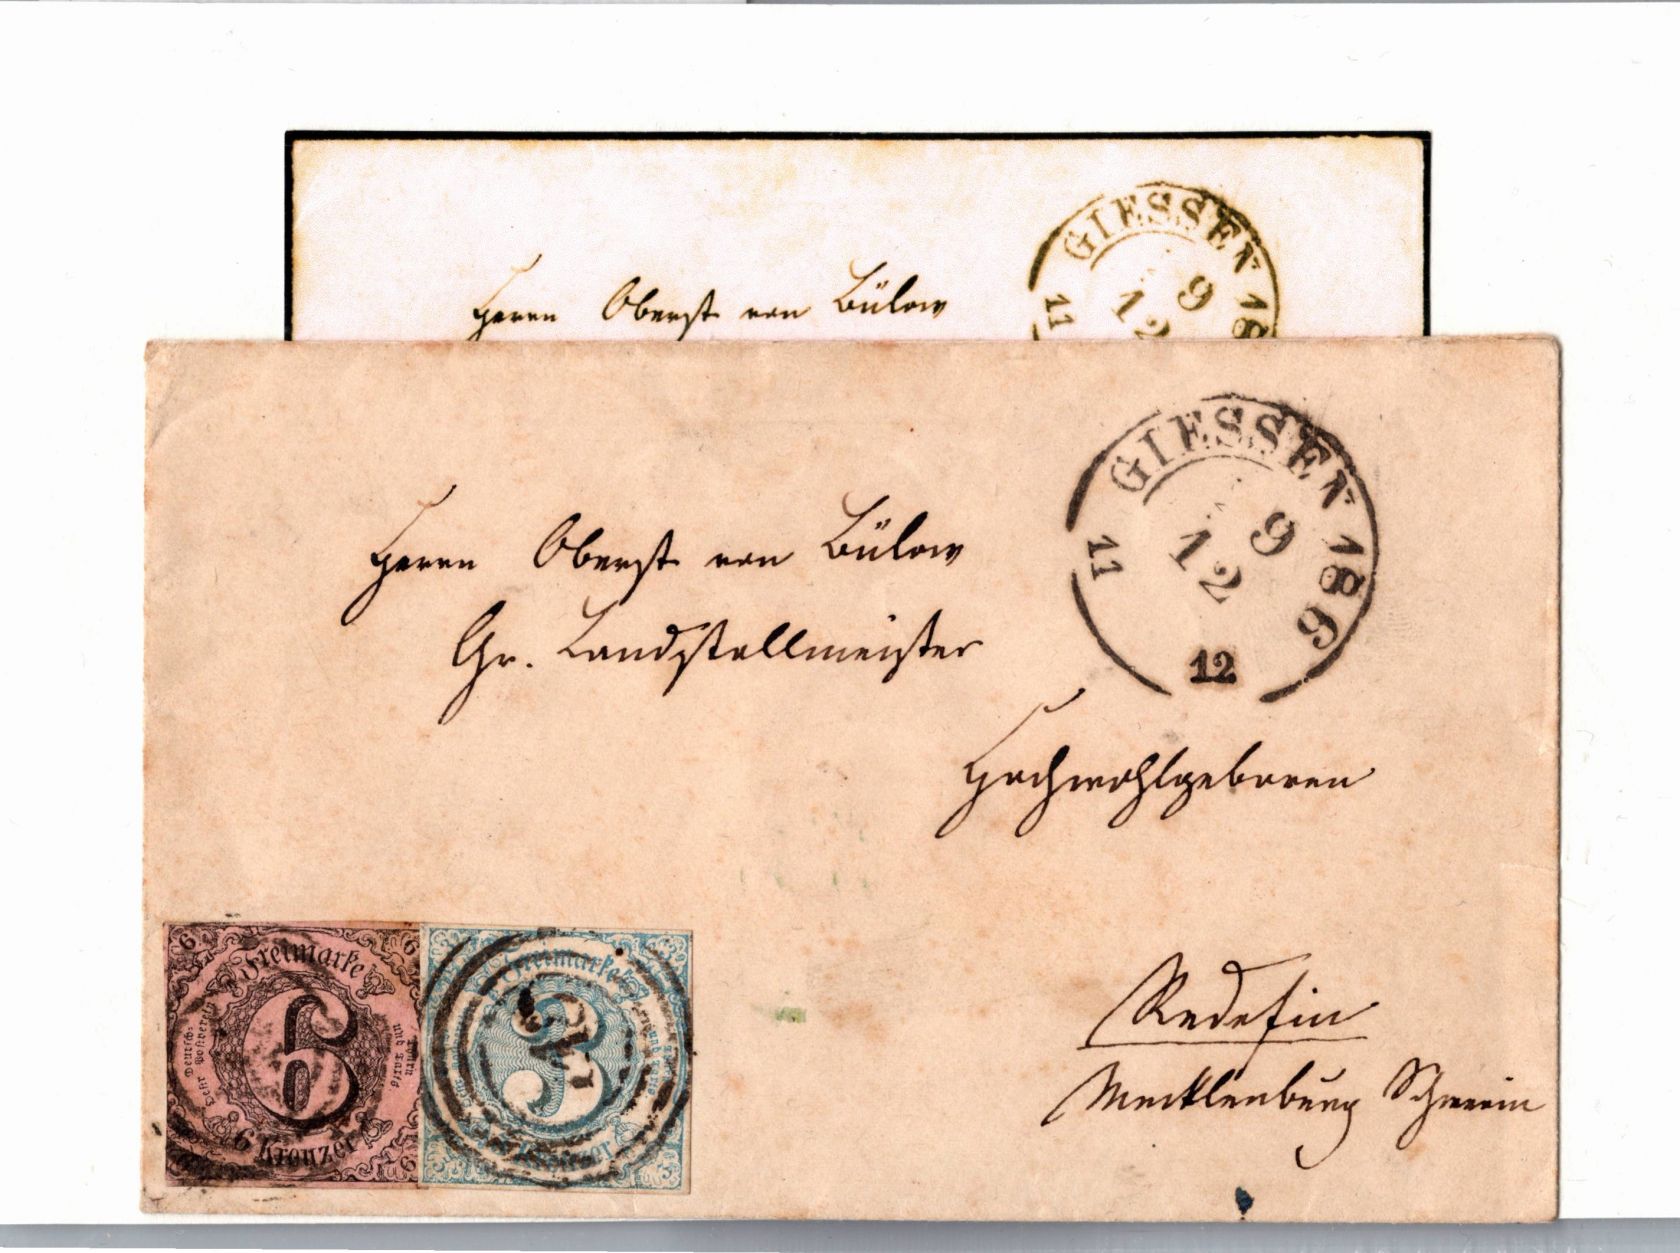 GIESSEN 18
11
9
12
Herrn Oberst von Bülow
GIESSEN 186
11
9
12
12
Herrn Oberst von Bülow
Gr. Landstallmeister
Hochwohlgeboren
Redefin
Mecklenburg Schwerin
6 6
Freimarke
Deutsch-Oestr. Postverein
6
Thurn und Taxis.
6 Kreuzer
Freimarke
3
und Taxis
Kreuzer